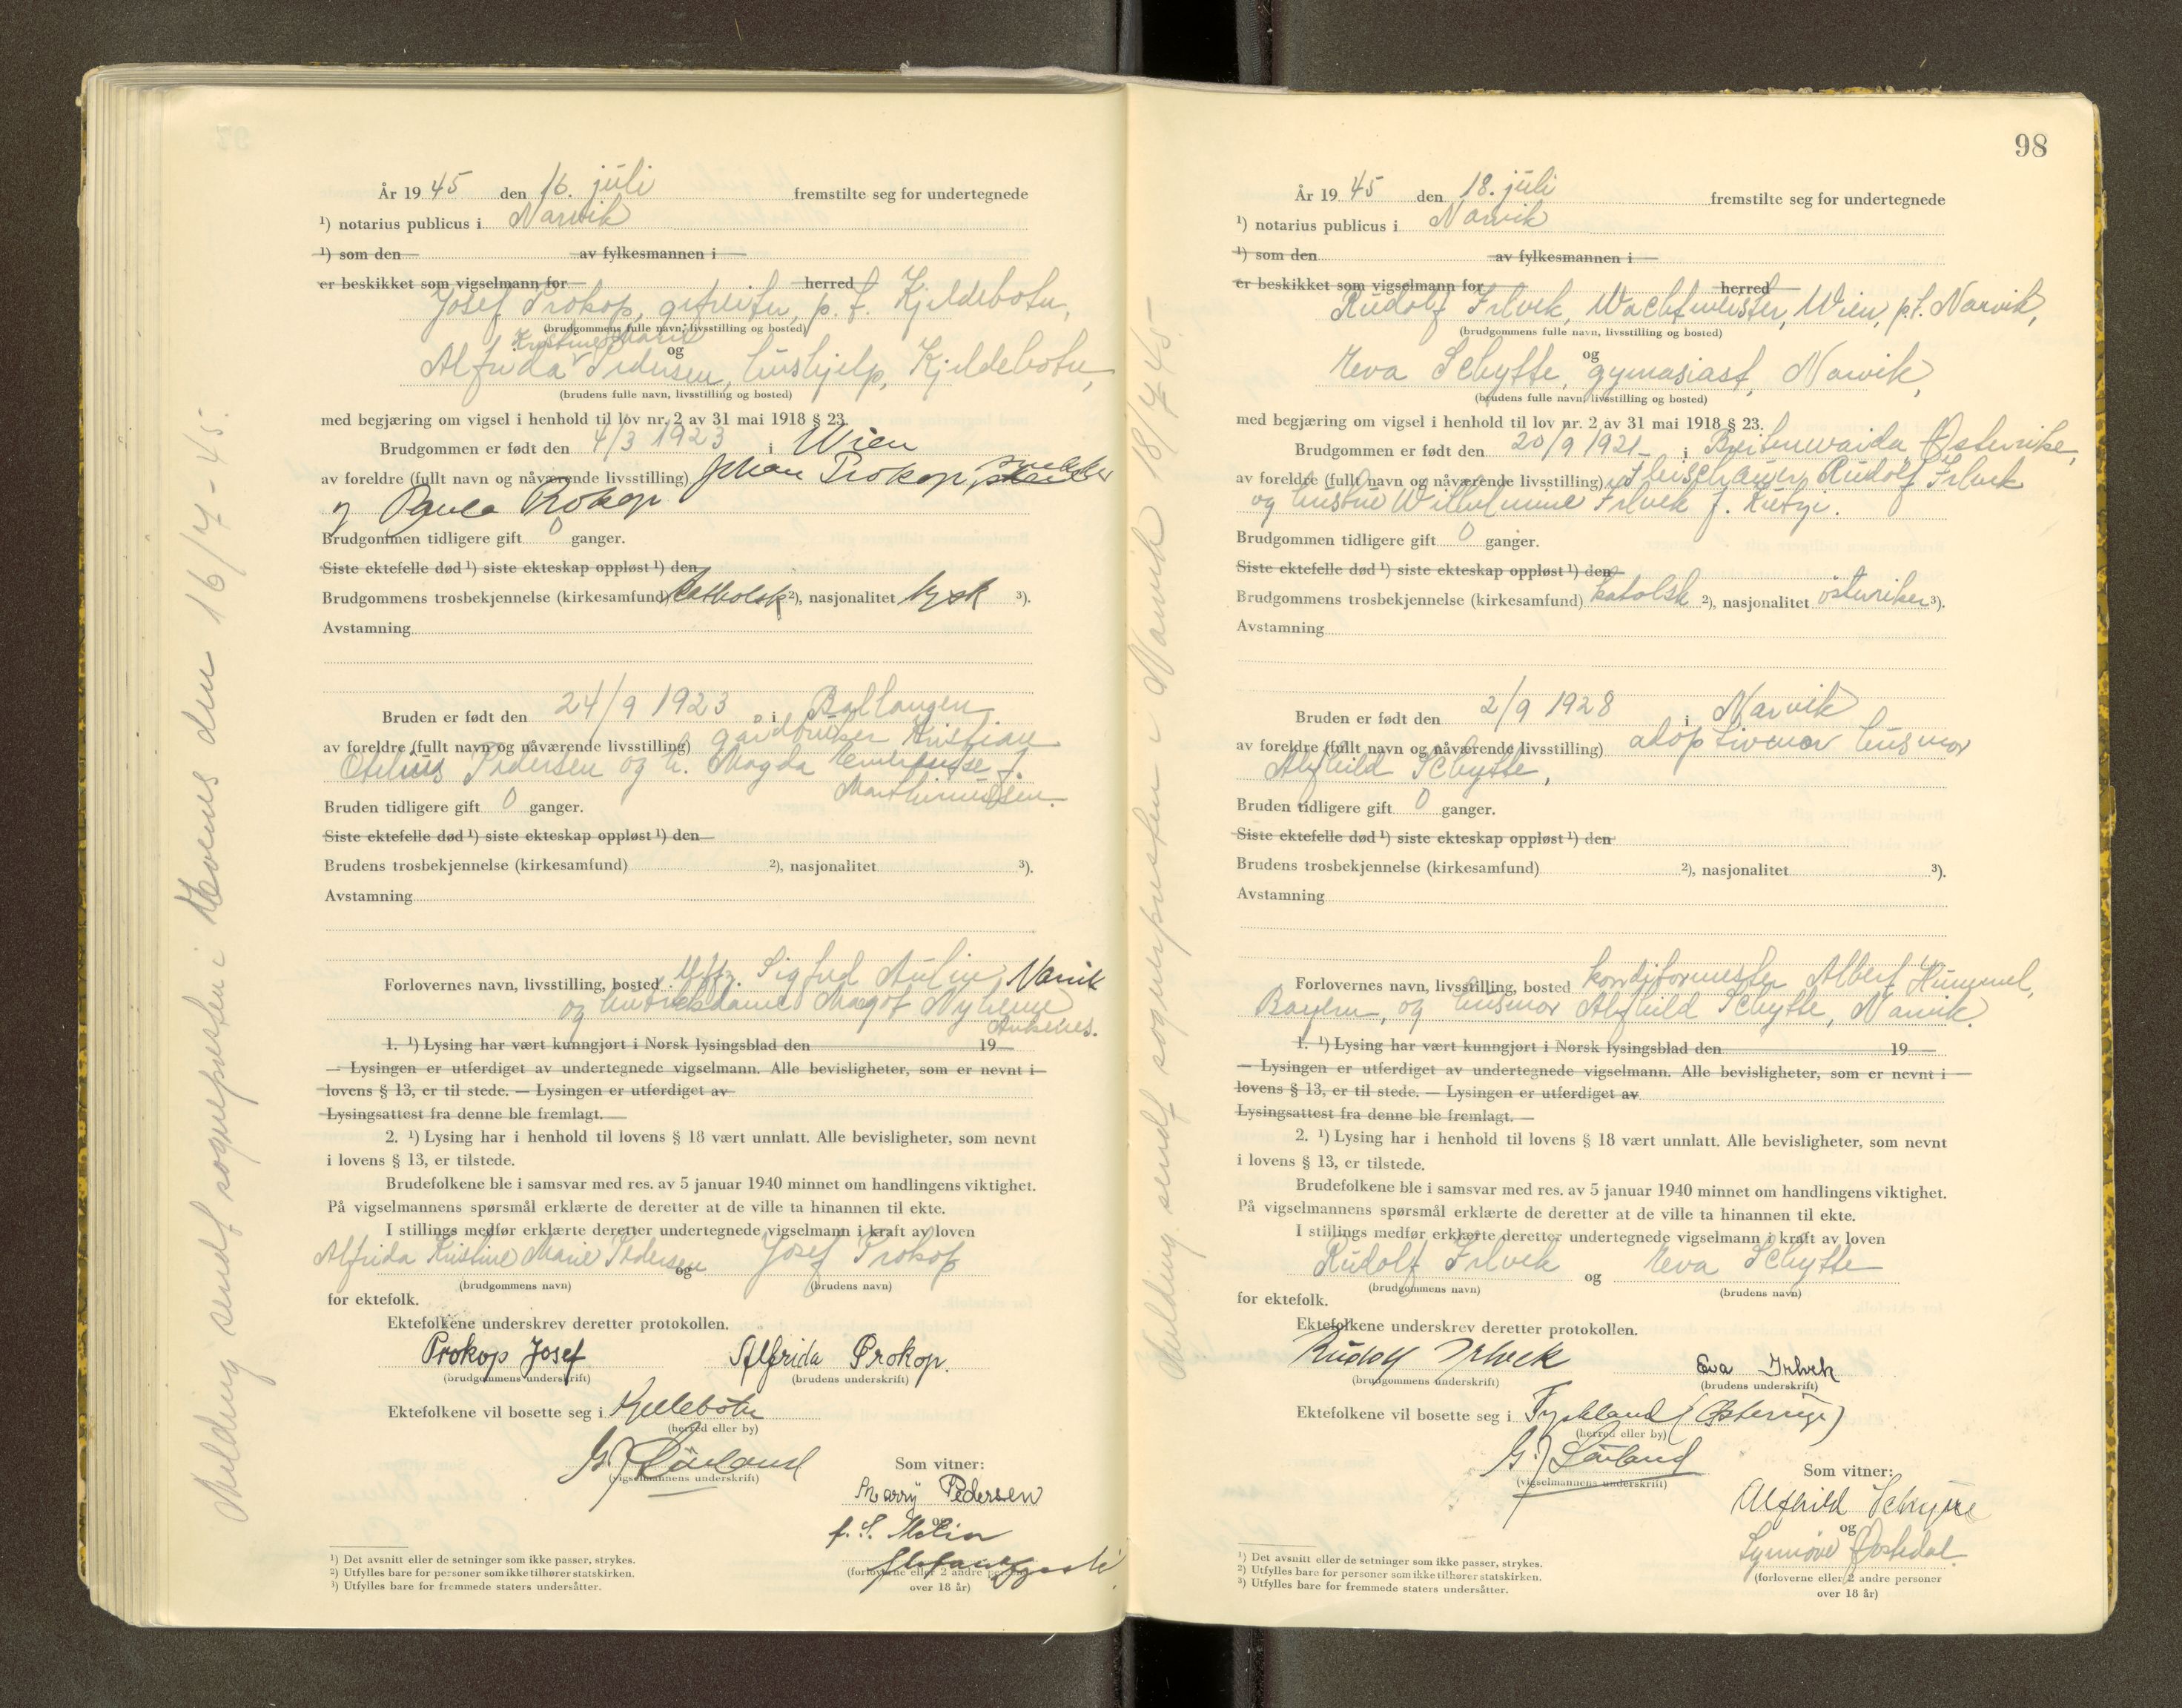 År 19 45 den 16. juli fremstilte seg for undertegnede
¹) notarius publicus i Narvik
¹) som den av fylkesmannen i
er beskikket som vigselmann for herred
Josef Prokop, gefreiter, p.t. Kjeldebotn,
(brudgommens fulle navn, livsstilling og bosted)
Kristine Marie
og
Alfrida Pedersen, hushjelp, Kjeldebotn,
(brudens fulle navn, livsstilling og bosted)
med begjæring om vigsel i henhold til lov nr. 2 av 31 mai 1918 § 23.
Brudgommen er født den 4/3 1923 i Wien
av foreldre (fullt navn og nåværende livsstilling) Johan Prokop,
og Paula Prokop
Brudgommen tidligere gift 0 ganger.
Siste ektefelle død ¹) siste ekteskap oppløst ¹) den
Brudgommens trosbekjennelse (kirkesamfund) katholsk ²), nasjonalitet tysk ³).
Avstamning
Bruden er født den 24/9 1923 i Ballangen
av foreldre (fullt navn og nåværende livsstilling) gårdbruker Kristian
Pedersen og h. Magda f.
Marthinussen.
Bruden tidligere gift 0 ganger.
Siste ektefelle død ¹) siste ekteskap oppløst ¹) den
Brudens trosbekjennelse (kirkesamfund) ²), nasjonalitet ³).
Avstamning
Forlovernes navn, livsstilling, bosted Uffz. Sigfred Narvik
og Magot
Ankenes.
1. ¹) Lysing har vært kunngjort i Norsk lysingsblad den 19
— Lysingen er utferdiget av undertegnede vigselmann. Alle bevisligheter, som er nevnt i
lovens § 13, er til stede. — Lysingen er utferdiget av
Lysingsattest fra denne ble fremlagt. —
2. ¹) Lysing har i henhold til lovens § 18 vært unnlatt. Alle bevisligheter, som nevnt
i lovens § 13, er tilstede.
Brudefolkene ble i samsvar med res. av 5 januar 1940 minnet om handlingens viktighet.
På vigselmannens spørsmål erklærte de deretter at de ville ta hinannen til ekte.
I stillings medfør erklærte deretter undertegnede vigselmann i kraft av loven
Alfrida Kristine Marie Pedersen og Josef Prokop
(brudgommens navn) (brudens navn)
for ektefolk.
Ektefolkene underskrev deretter protokollen.
Prokop Josef Alfrida Prokop.
(brudgommens underskrift) (brudens underskrift)
Ektefolkene vil bosette seg i Kjellebotn
(herred eller by)
(vigselmannens underskrift)
Som vitner:
Pedersen
og
(forloverne eller 2 andre personer
over 18 år)
¹) Det avsnitt eller de setninger som ikke passer, strykes.
²) Utfylles bare for personer som ikke tilhører statskirken.
³) Utfylles bare for fremmede staters undersåtter.
Melding sendt sognepresten i den 16/7-45.
98
År 19 45 den 18. juli fremstilte seg for undertegnede
¹) notarius publicus i Narvik
¹) som den av fylkesmannen i
er beskikket som vigselmann for herred
Rudolf Irlvek, Wachtmeister, Wien, p.t. Narvik,
(brudgommens fulle navn, livsstilling og bosted)
og
Eva Schytte, gymnasiast, Narvik,
(brudens fulle navn, livsstilling og bosted)
med begjæring om vigsel i henhold til lov nr. 2 av 31 mai 1918 § 23.
Brudgommen er født den 20/9 1921 i Breitenwaida, Østerrike,
av foreldre (fullt navn og nåværende livsstilling) Rudolf Irlvek
og hustru Wilhelmine Irlvek f.
Brudgommen tidligere gift 0 ganger.
Siste ektefelle død ¹) siste ekteskap oppløst ¹) den
Brudgommens trosbekjennelse (kirkesamfund) katolsk ²), nasjonalitet østeriker ³).
Avstamning
Bruden er født den 2/9 1928 i Narvik
av foreldre (fullt navn og nåværende livsstilling) adoptivmor husmor
Alfhild Schytte,
Bruden tidligere gift 0 ganger.
Siste ektefelle død ¹) siste ekteskap oppløst ¹) den
Brudens trosbekjennelse (kirkesamfund) ²), nasjonalitet ³).
Avstamning
Forlovernes navn, livsstilling, bosted konditormester Albert Hummel,
Bayern, og husmor Alfhild Schytte, Narvik.
1. ¹) Lysing har vært kunngjort i Norsk lysingsblad den 19
— Lysingen er utferdiget av undertegnede vigselmann. Alle bevisligheter, som er nevnt i
lovens § 13, er til stede. — Lysingen er utferdiget av
Lysingsattest fra denne ble fremlagt. —
2. ¹) Lysing har i henhold til lovens § 18 vært unnlatt. Alle bevisligheter, som nevnt
i lovens § 13, er tilstede.
Brudefolkene ble i samsvar med res. av 5 januar 1940 minnet om handlingens viktighet.
På vigselmannens spørsmål erklærte de deretter at de ville ta hinannen til ekte.
I stillings medfør erklærte deretter undertegnede vigselmann i kraft av loven
Rudolf Irlvek og Eva Schytte
(brudgommens navn) (brudens navn)
for ektefolk.
Ektefolkene underskrev deretter protokollen.
Rudolf Irlvek Eva Irlvek
(brudgommens underskrift) (brudens underskrift)
Ektefolkene vil bosette seg i Tyskland (Østerrige)
(herred eller by)
(vigselmannens underskrift)
Som vitner:
Alfhild Schytte
og
Synnøve Østedal.
(forloverne eller 2 andre personer
over 18 år)
¹) Det avsnitt eller de setninger som ikke passer, strykes.
²) Utfylles bare for personer som ikke tilhører statskirken.
³) Utfylles bare for fremmede staters undersåtter.
Melding sendt sognepresten i Narvik 18/7 45.